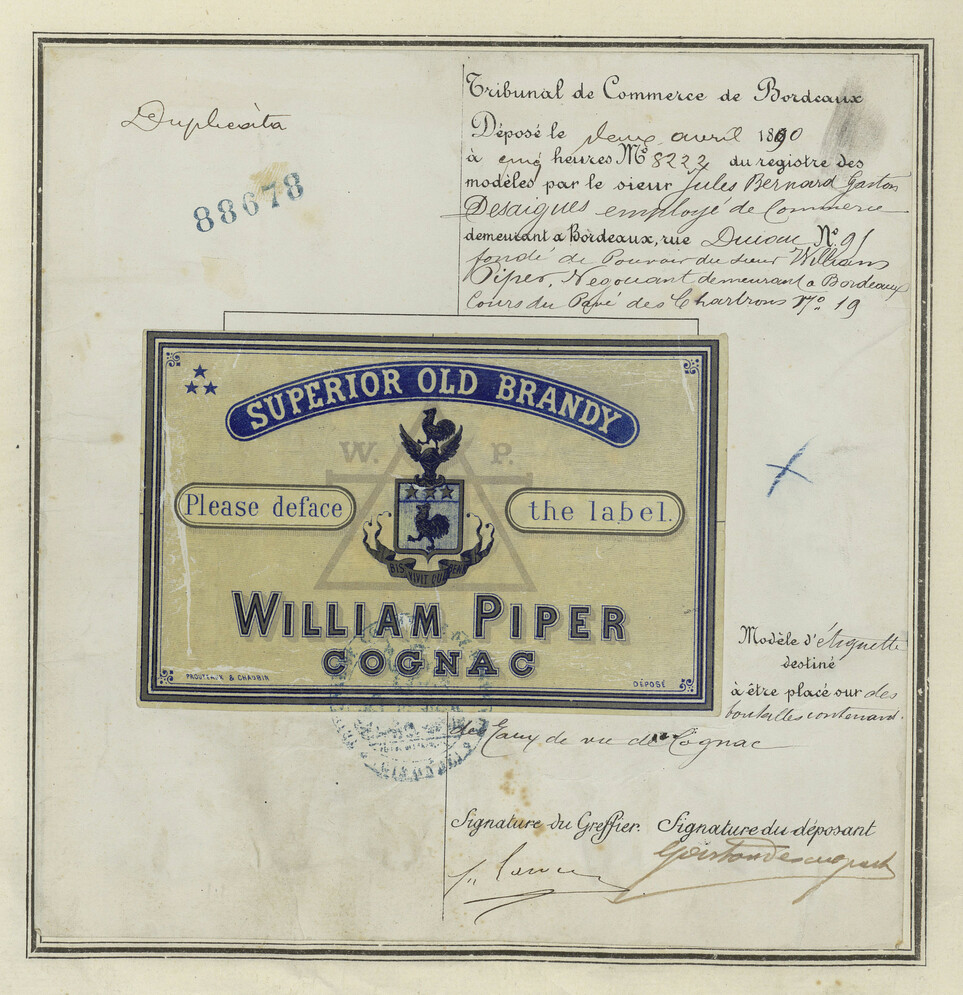 Duplicata
88678
Tribunal de Commerce de Bordeaux
Déposé le deux avril 1890
à cinq heures No 8222 du registre des
modèles par le sieur Jules Bernard Gaston
Desaigues employé de Commerce
demeurant à Bordeaux, rue No 91
fondé de Pouvoir du sieur William
Piper, Négociant demeurant à Bordeaux
Cours du Pavé des Chartrons No 19
SUPERIOR OLD BRANDY
W. P.
Please deface the label.
BIS VIVIT QUI BENE
WILLIAM PIPER
COGNAC
PROUTEAUX & CHAUBIN
DÉPOSÉ
Modèle d'étiquette
destiné
à être placé sur des
bouteilles contenant
des Eaux de vie de Cognac
Signature du Greffier. Signature du déposant